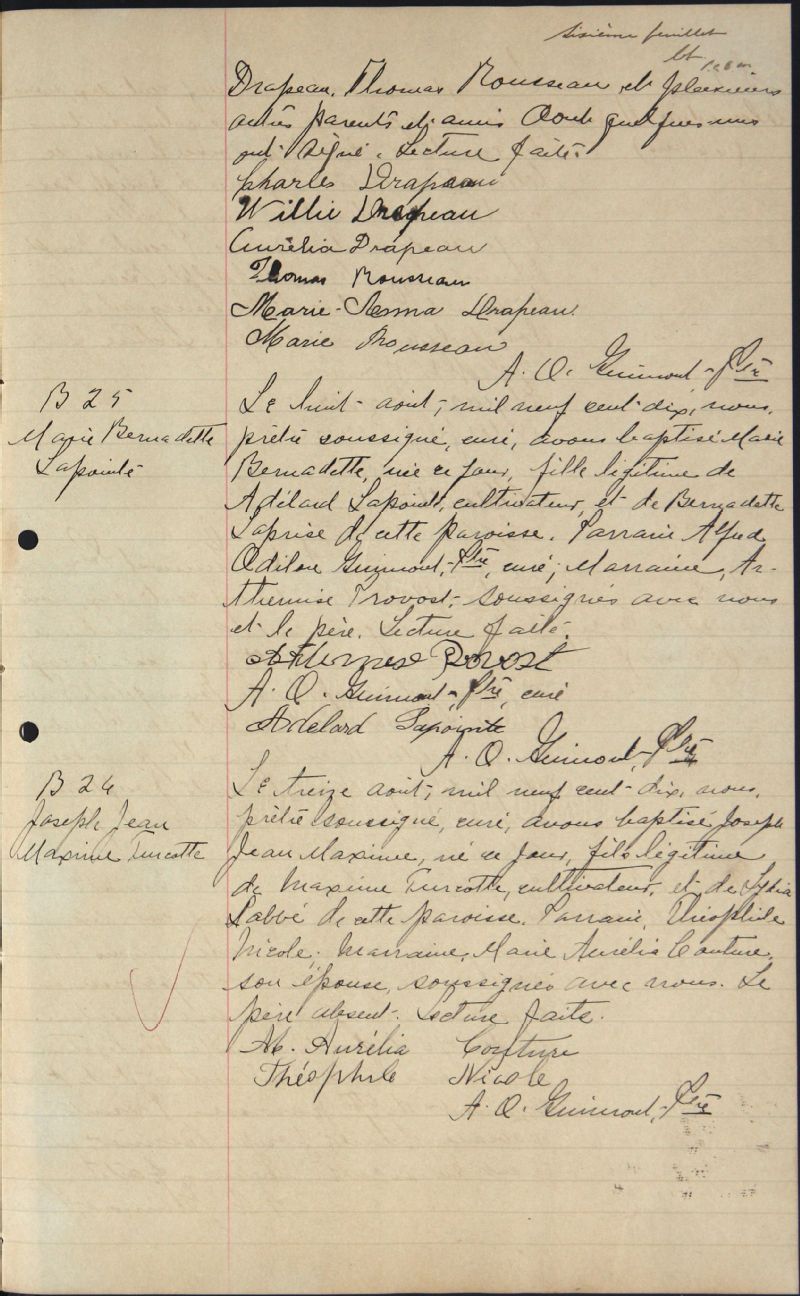 Sixième feuillet
Drapeau, Thomas Rousseau et plusieurs
autres parents et amis dont quelques-uns
ont signé. Lecture faite.
Charles Drapeau
Willie Drapeau
Aurélia Drapeau
Thomas Rousseau
Marie-Anna Drapeau
Marie Rousseau
A. O. Guimont, Ptre
B 25
Marie Bernadette
Lapointe
Le huit août, mil neuf cent-dix, nous,
prêtre soussigné, curé, avons baptisé Marie
Bernadette, née ce jour, fille légitime de
Adélard Lapointe, cultivateur, et de Bernadette
Laprise de cette paroisse. Parrain Alfred
Odilon Guimont, Ptre, curé; Marraine, Ar-
themise Provost, soussignés avec nous
et le père. Lecture faite.
Athemese Provost
A. O. Guimont, Ptre, curé
Adelard Lapointe
A. O. Guimont, Ptre
B 26
Joseph Jean
Maxime Turcotte
Le treize août, mil neuf cent-dix, nous,
prêtre soussigné, curé, avons baptisé Joseph
Jean Maxime, né ce jour, fils légitime
de Maxime Turcotte, cultivateur, et de Lydia
Labbé de cette paroisse. Parrain, Théophile
Nicole; marraine, Marie Aurélie Couture,
son épouse, soussignés avec nous. Le
père absent. Lecture faite.
M. Aurélia Couture
Théophile Nicole
A. O. Guimont, Ptre